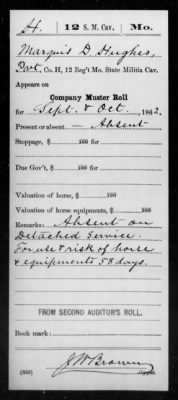 H. 12 S. M. Cav. Mo.
Marquis D. Hughes,
Pvt, Co. H, 12 Reg't Mo. State Militia Cav.
Appears on
Company Muster Roll
for Sept. & Oct., 1862.
Present or absent — Absent
Stoppage, $ 100 for
Due Gov't, $ 100 for
Valuation of horse, $ 100
Valuation of horse equipments, $ 100
Remarks: Absent on
Detached Service.
For use & risk of horse
& equipments 58 days.
FROM SECOND AUDITOR'S ROLL.
Book mark:
J W Brown
(359) Copyist.